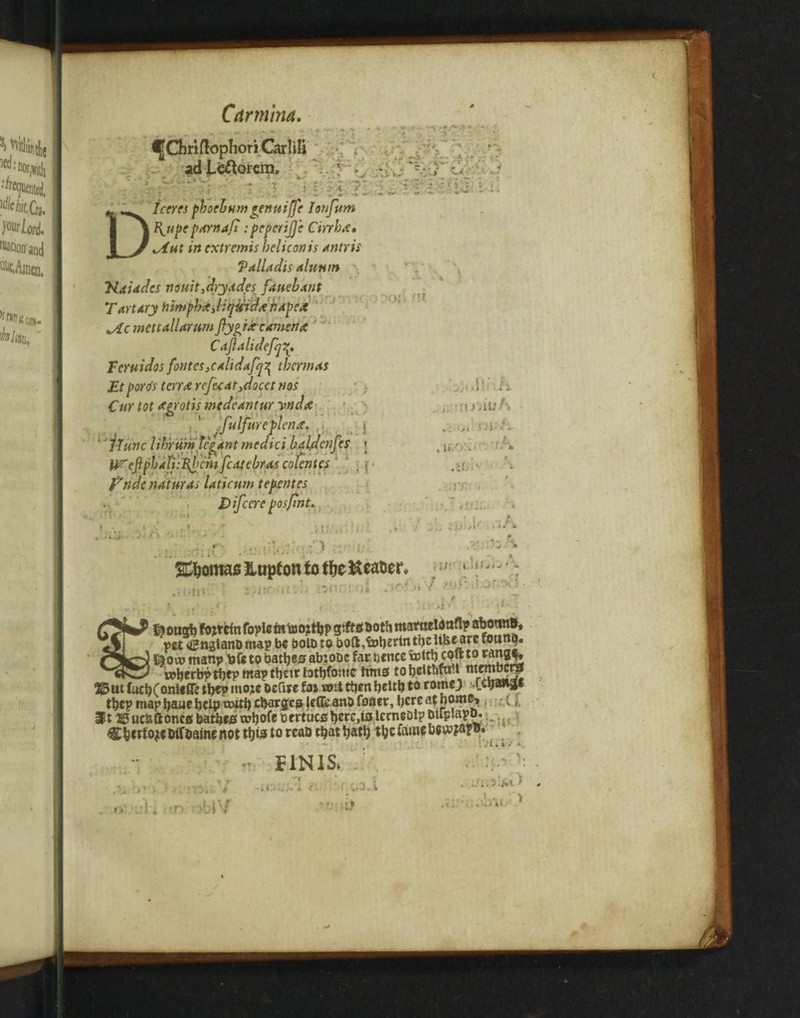 Carmina.
¶Chriſtophori Carliſi
ad Lectorem.
DIceres phoebum genuiſſe Ionſum
Rupe parnaſi : peperiſſe Cirrhæ.
Aut in extremis heliconis antris
Palladis aluum
Naiades nouit, dryades fauebant
Tartary nimphæ, liquidæ napeæ
Ac mettallarum ſtygiæ camenæ
Caſtalideſqꝫ.
Feruidos fontes, calidaſqꝫ thermas
Et porös terræ reſecat, docet nos
Cur tot ægrotis medeantur vndæ
ſulfure plenæ.
Hunc librum legant medici baldenſes
Weſtphali: Rhem ſcatebras colentes
Vnde naturas laticum tepentes
Diſcere posſint.
Thomas Lupton to the Reader.
THough forrein ſoyle in worthy gifts doth maruelouſly abound,
yet England may be bold to boſt, wherin the like are found.
How many vſe to bathes abrode far hence with coſt to range,
wherby they may their lothſome lims to helthfull members
But ſuch (onleſſe they more deſire for wil then helth to rome) [change
they may haue help with charges leſſe and ſoner, here at home,
At Buckſtones bathes whoſe vertues here, is lernedly diſplayd.
Therfore diſdaine not this to read that hath the ſame bewrayd.
FINIS.